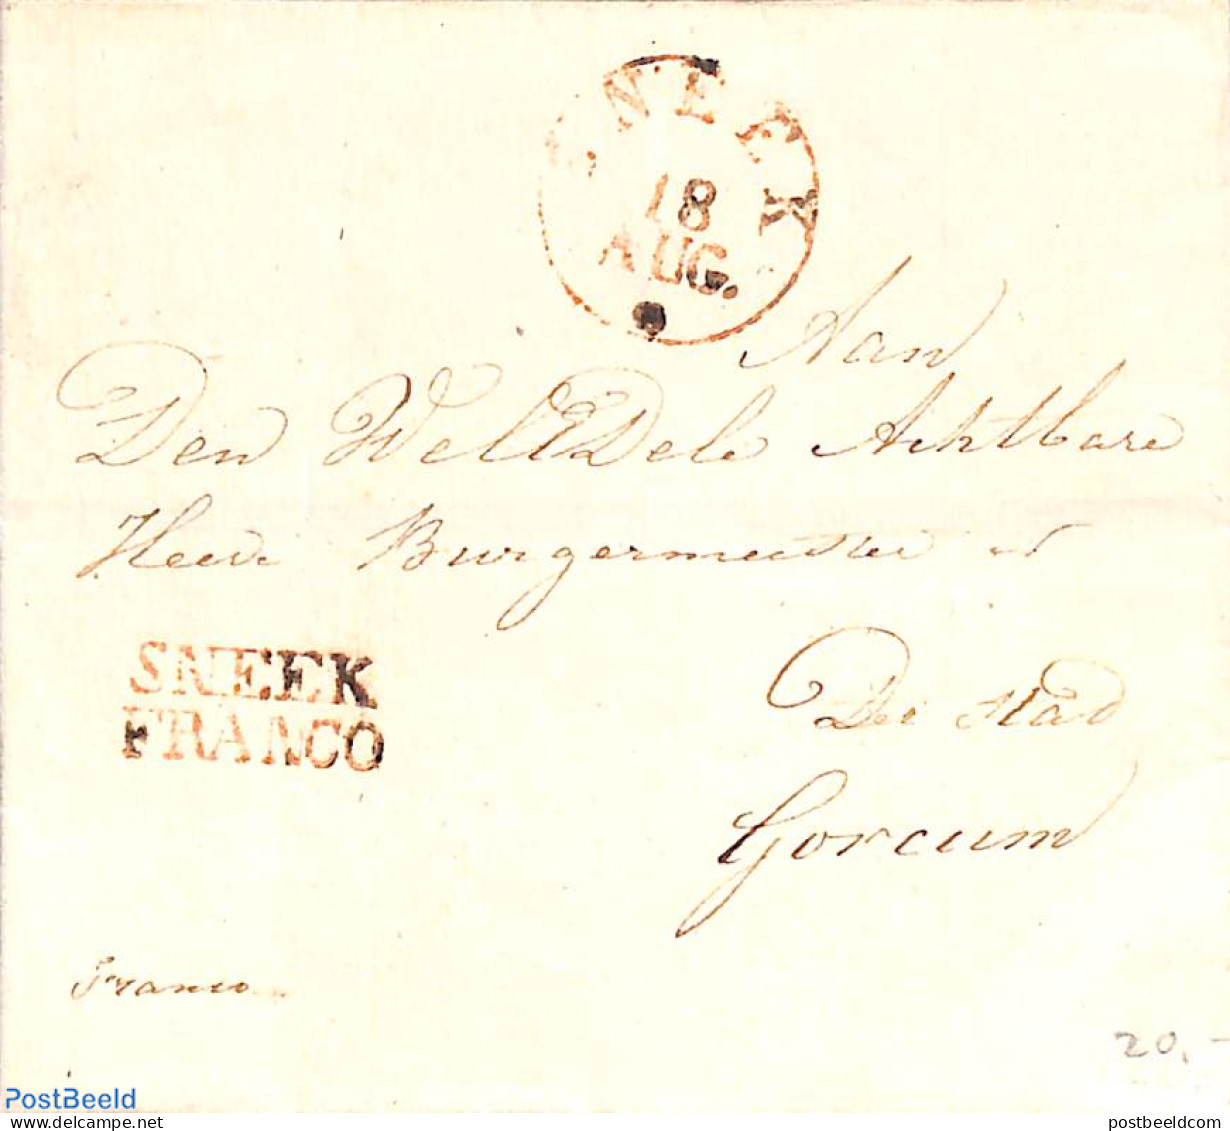 SNEEK
18
AUG.
Aan
Den WelEDele Achtbare
Heere Burgermeester
SNEEK
FRANCO
Der Stad
Gorcum
Franco
20,-
PostBeeld
www.postbeeld.net
postbeeldcom